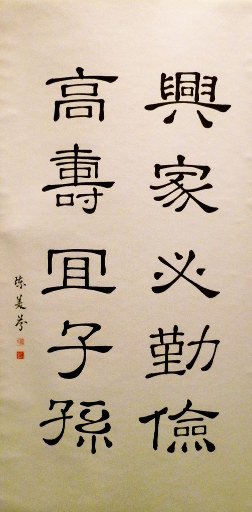 興家必勤儉
高壽宜子孫
陈美芬